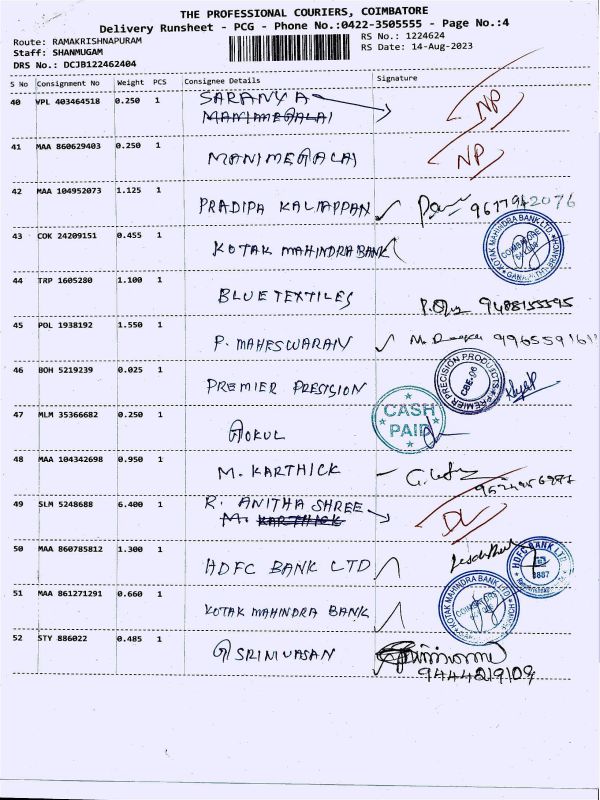 THE PROFESSIONAL COURIERS, COIMBATORE
Delivery Runsheet - PCG - Phone No.:0422-3505555 - Page No.:4
Route: RAMAKRISHNAPURAM
Staff: SHANMUGAM
DRS No.: DCJB122462404
RS No.: 1224624
RS Date: 14-Aug-2023
S No Consignment No Weight PCS Consignee Details Signature
40 VPL 403464518 0.250 1 SARANYA NP
MANIMEGALAI
41 MAA 860629403 0.250 1 MANIMEGALAI NP
42 MAA 104952073 1.125 1 PRADIPA KALIAPPAN 9677942076
43 COK 24209151 0.455 1 KOTAK MAHINDRA BANK
KOTAK MAHINDRA BANK LTD
COIMBATORE
44 TRP 1605280 1.100 1 BLUE TEXTILES 9488155595
45 POL 1938192 1.550 1 P. MAHESWARAN
46 BOH 5219239 0.025 1 PREMIER PRESISION
PREMIER PRECISION PRODUCTS
CBE-06
47 MLM 35366682 0.250 1 GOKUL
CASH
PAID
48 MAA 104342698 0.950 1 M. KARTHICK
49 SLM 5248688 6.400 1 R. ANITHA SHREE DL
M. KARTHICK
50 MAA 860785812 1.300 1 HDFC BANK LTD
HDFC BANK LTD.
51 MAA 861271291 0.660 1 KOTAK MAHINDRA BANK
KOTAK MAHINDRA BANK LTD
52 STY 886022 0.485 1 G SRINIVASAN
9444819109